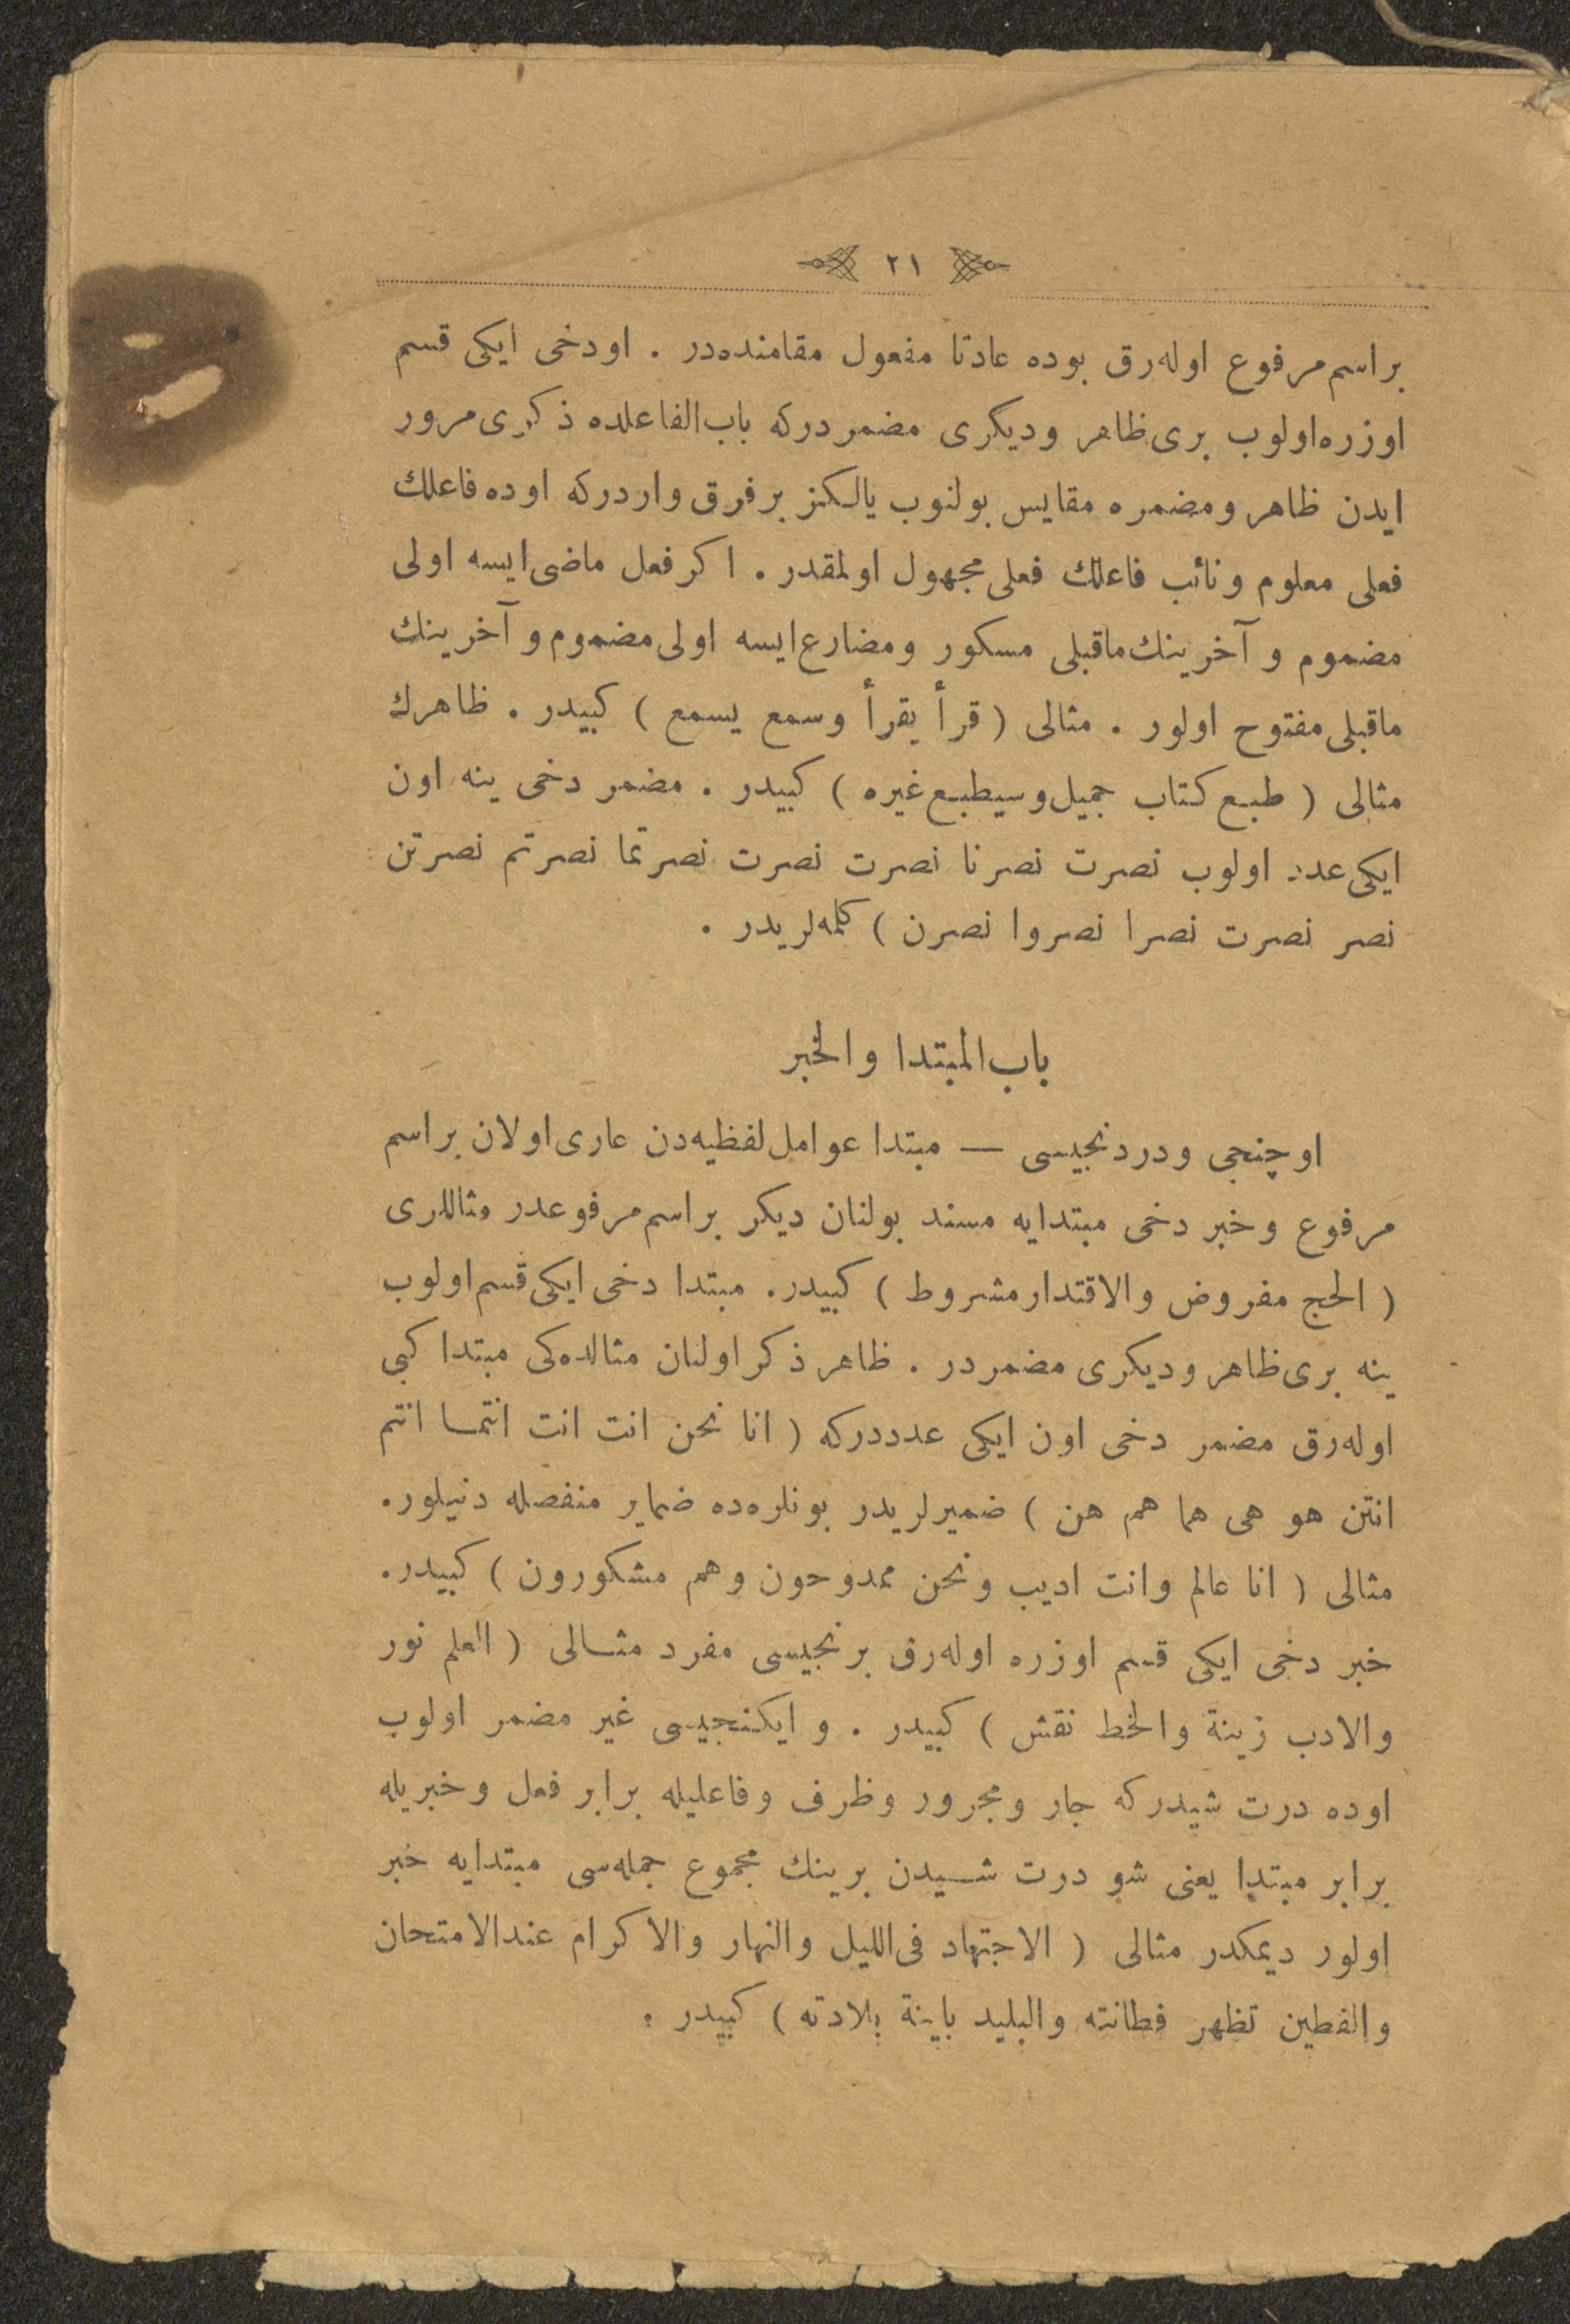 ٢١
بر اسم مرفوع اوله‌رق بوده عادتا مفعول مقامنده‌در . اودخی ایکی قسم
اوزره اولوب بری ظاهر ودیکری مضمردرکه باب الفاعلده ذکری مرور
ایدن ظاهر ومضمره مقایس بولنوب یالکز بر فرق واردرکه اوده فاعلك
فعلی معلوم ونائب فاعلك فعلی مجهول اولمقدر . اکر فعل ماضی ایسه اولی
مضموم و آخرینك ماقبلی مسکور ومضارع ایسه اولی مضموم و آخرینك
ماقبلی مفتوح اولور . مثالی ( قرأ یقرأ وسمع یسمع ) کبیدر . ظاهرك
مثالی ( طبع کتاب جمیل وسیطبع غیره ) کبیدر . مضمر دخی ینه اون
ایکی عدد اولوب نصرت نصرنا نصرت نصرت نصرتما نصرتم نصرتن
نصر نصرت نصرا نصروا نصرن ) کلمه‌لریدر .
باب المبتدا والخبر
اوچنجی ودردنجیسی — مبتدا عوامل لفظیه‌دن عاری اولان بر اسم
مرفوع وخبر دخی مبتدایه مسند بولنان دیکر بر اسم مرفوعدر مثاللری
( الحج مفروض والاقتدار مشروط ) کبیدر. مبتدا دخی ایکی قسم اولوب
ینه بری ظاهر ودیکری مضمردر . ظاهر ذکر اولنان مثالده‌کی مبتدا کبی
اوله‌رق مضمر دخی اون ایکی عدددرکه ( انا نحن انت انت انتما انتم
انتن هو هی هما هم هن ) ضمیرلریدر بونلره‌ده ضمایر منفصله دنیلور.
مثالی ( انا عالم وانت ادیب ونحن ممدوحون وهم مشکورون ) کبیدر.
خبر دخی ایکی قسم اوزره اوله‌رق برنجیسی مفرد مثالی ( العلم نور
والادب زینة والخط نقش ) کبیدر . و ایکنجیسی غیر مضمر اولوب
اوده درت شیدرکه جار ومجرور وظرف وفاعلیله برابر فعل وخبریله
برابر مبتدا یعنی شو درت شیدن برینك مجموع جمله‌سی مبتدایه خبر
اولور دیمکدر مثالی ( الاجتهاد فی اللیل والنهار والاکرام عندالامتحان
والفطین تظهر فطانته والبلید باینة بلادته ) کبیدر .